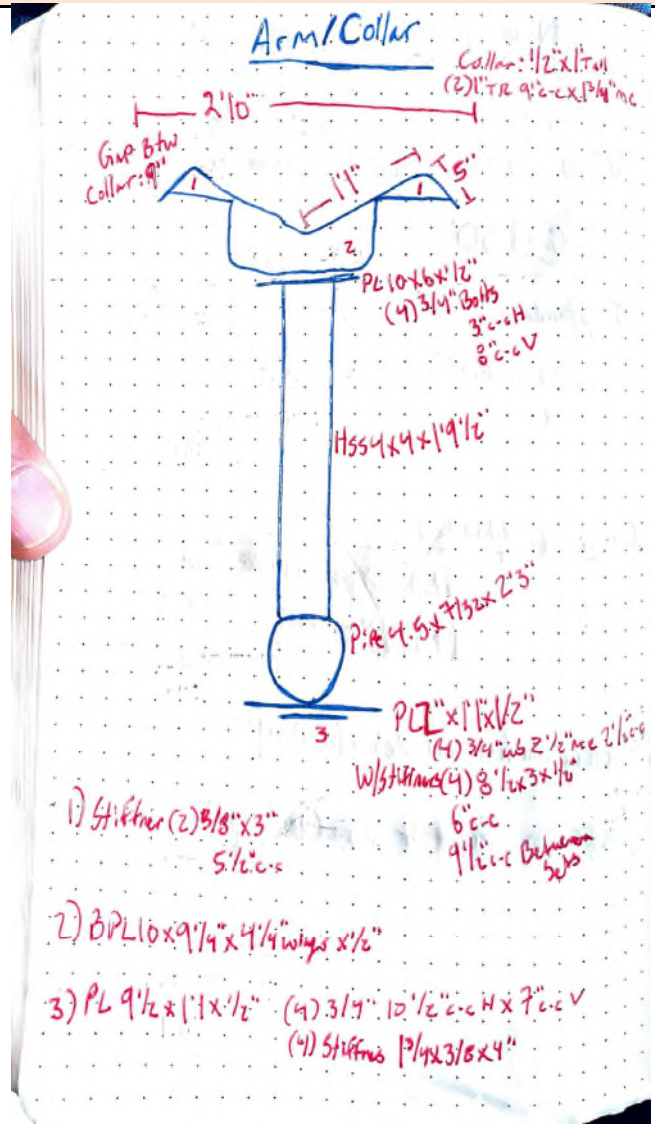 Arm/Collar
Collar: 1/2"x1' Tall
(2) 1" TR 9" c-c x 1 3/4" mc
2'10"
Gap Btw
Collar: 9"
1'1"
5"
1
1
2
PL 10x6x1/2"
(4) 3/4" Bolts
3" c-c H
8" c-c V
HSS 4x4x1'9 1/2"
Pipe 4.5x7/32x2'3"
3
x1'1x1/2"
(4) 3/4" 2 1/2" mc 2 1/2" c-c
W/Stiffners (4) 8 1/2x3x1/2"
6" c-c
9 1/2 c-c Between
Sets
1) Stiffner (2) 3/8" x3"
5 1/2" c-c
2) BPL 10x9 1/4" x4 1/4" wings x1/2"
3) PL 9 1/2 x1'1x1/2" (4) 3/4" 10 1/2" c-c H x 7" c-c V
(4) Stiffnrs 1 3/4x3/8x4"